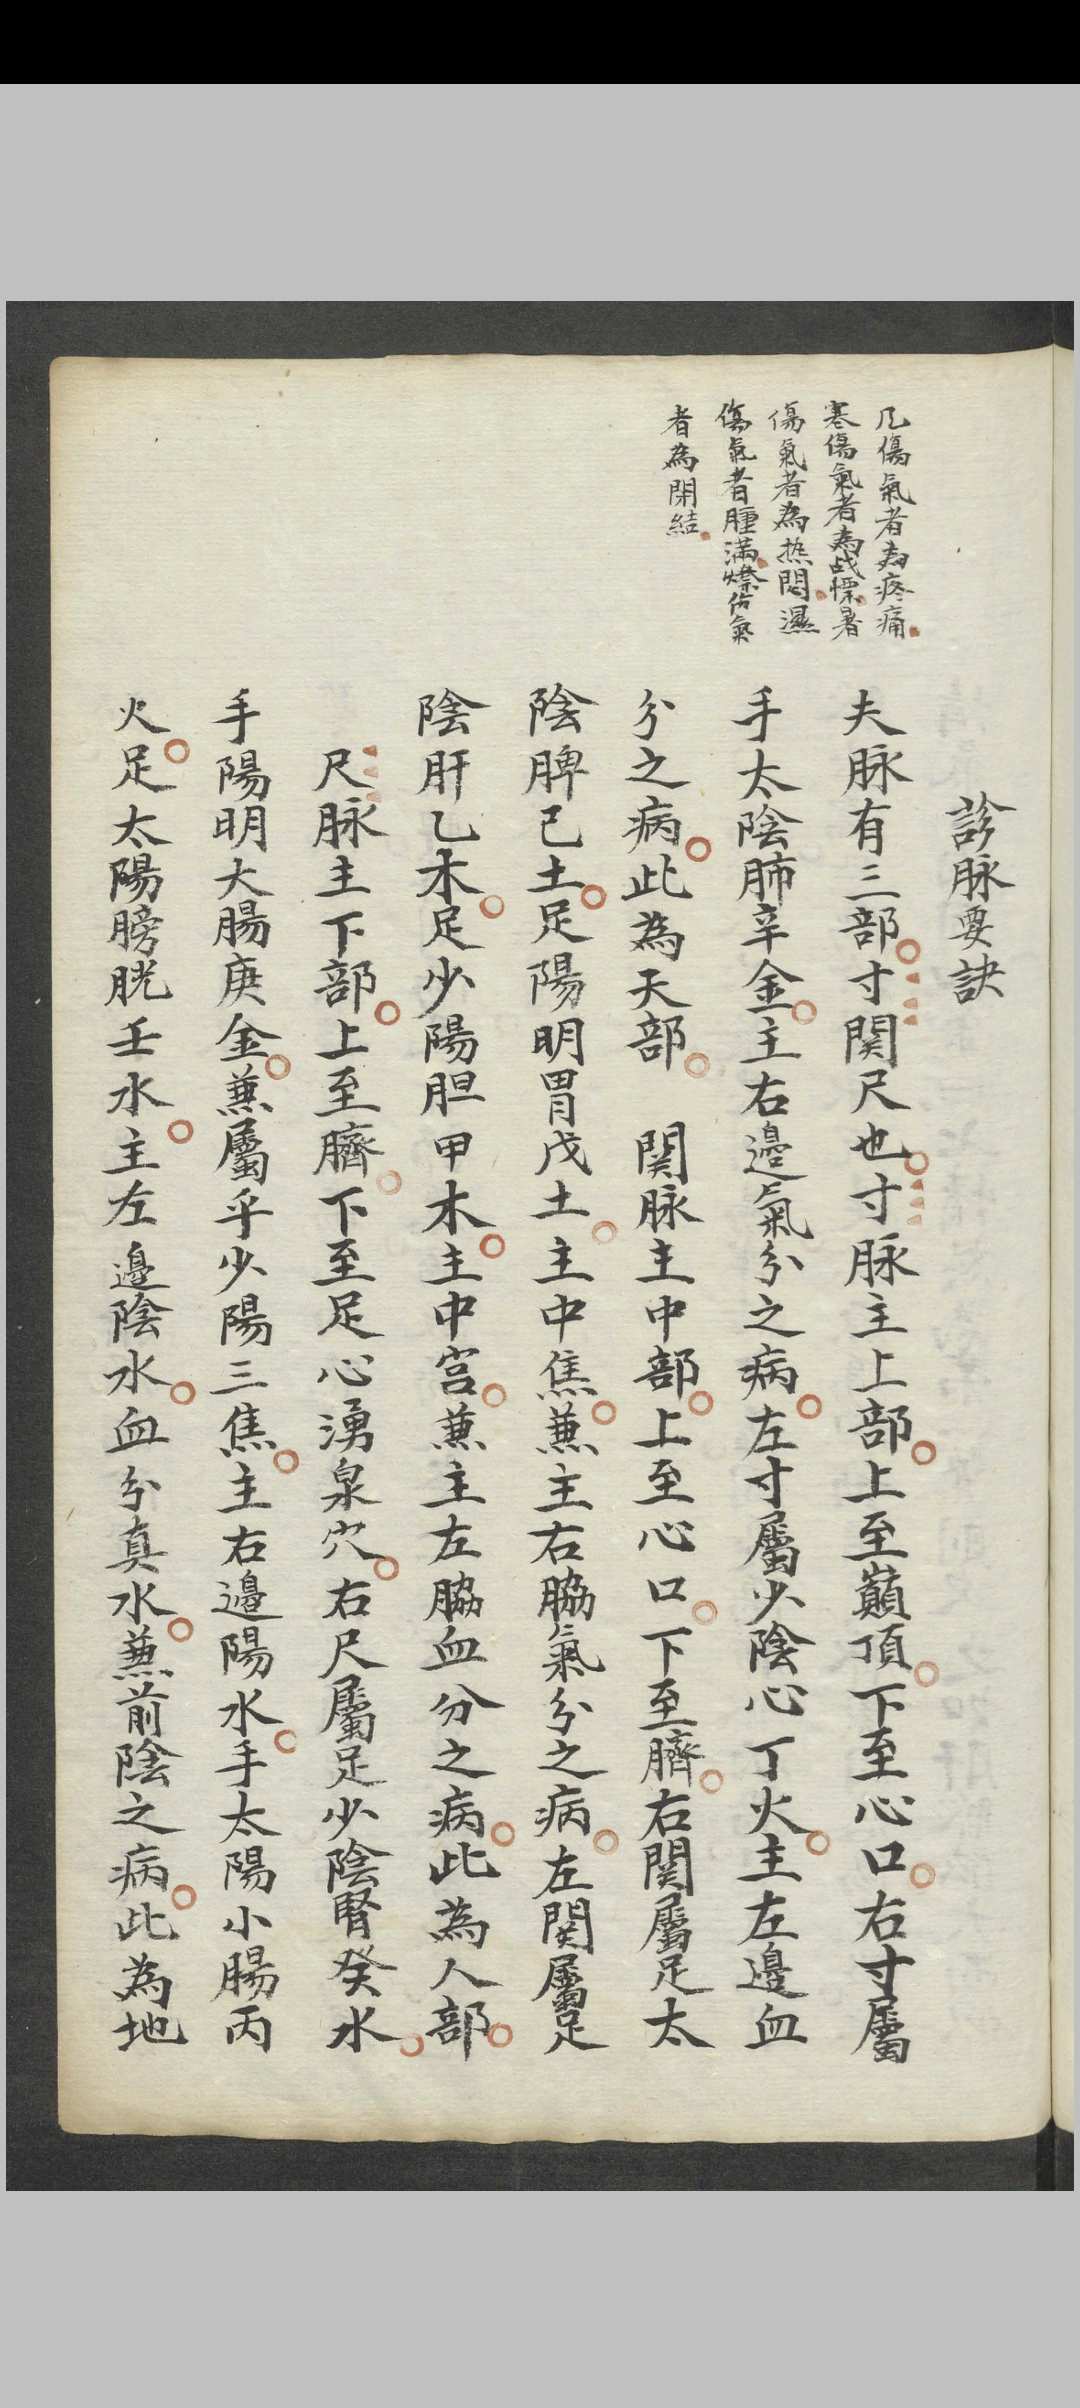 診脉要訣
凡傷氣者為疼痛
寒傷氣者為战慄暑
傷氣者為热悶濕
傷氣者腫滿燥傷氣
者為閉結
夫脉有三部寸関尺也寸脉主上部上至巔頂下至心口右寸屬
手太陰肺辛金主右邉氣分之病左寸屬少陰心丁火主左邉血
分之病此為天部　関脉主中部上至心口下至臍右関屬足太
陰脾己土足陽明胃戊土主中焦兼主右脇氣分之病左関屬足
陰肝乙木足少陽胆甲木主中宫兼主左脇血分之病此為人部
尺脉主下部上至臍下至足心湧泉穴右尺屬足少陰腎癸水
手陽明大腸庚金兼屬乎少陽三焦主右邉陽水手太陽小腸丙
火足太陽膀胱壬水主左邉陰水血分真水兼前陰之病此為地